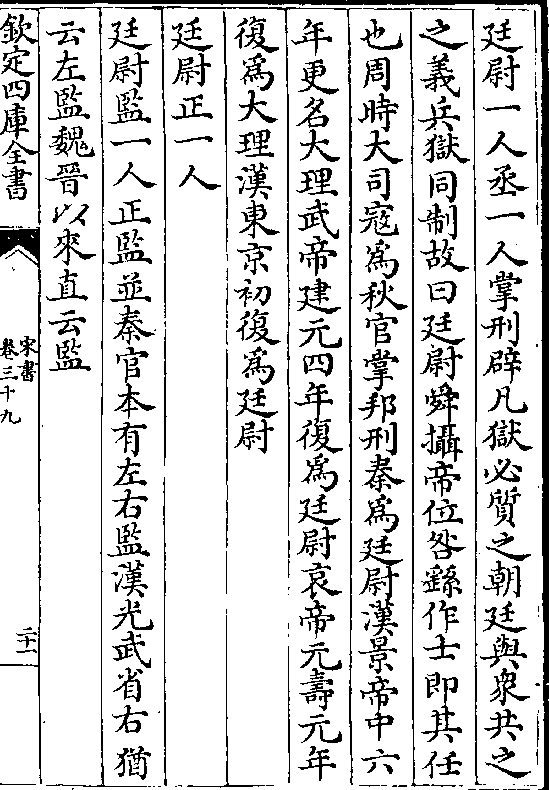 廷尉一人丞一人掌刑辟凡獄必質之朝廷與衆共之
之義兵獄同制故曰廷尉舜攝帝位咎繇作士即其任
也周時大司寇爲秋官掌邦刑秦爲廷尉漢景帝中六
年更名大理武帝建元四年復爲廷尉哀帝元壽元年
復爲大理漢東京初復爲廷尉
廷尉正一人
廷尉監一人正監並秦官本有左右監漢光武省右猶
云左監魏晉以來直云監
欽定四庫全書
宋書
卷三十九
二十一